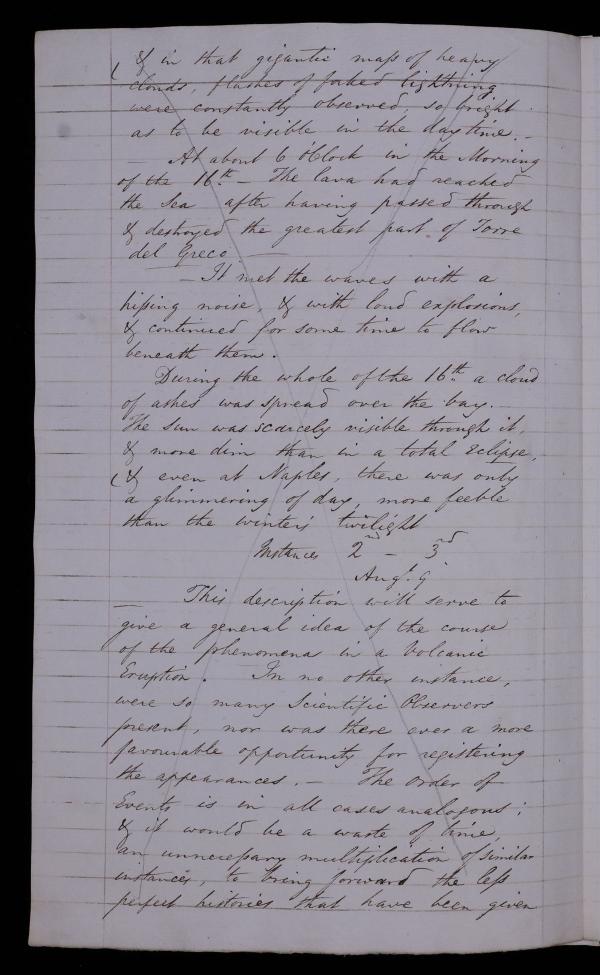 & in that gigantic mass of heavy
clouds, flashes of forked lightning
were constantly observed, so bright
as to be visible in the day time. -
- At about 6 o'Clock in the Morning
of the 16th. - The lava had reached
the Sea after having passed through
& destroyed the greatest part of Torre
del Greco. -
- It met the waves with a
hissing noise, & with loud explosions,
& continued for some time to flow
beneath them.
During the whole of the 16th. a cloud
of ashes was spread over the bay. -
The Sun was scarcely visible through it,
& more dim than in a total Eclipse,
(& even at Naples, there was only
a glimmering of day, more feeble
than the winter's twilight
Instances 2nd - 3rd
Augt. 9
- This description will serve to
give a general idea of the course
of the phenomena in a Volcanic
Eruption. In no other instance,
were so many Scientific Observers
present, nor was there ever a more
favourable opportunity for registering
the appearances. - The order of
Events is in all cases analogous;
& it would be a waste of time,
an unnecessary multiplication of similar
instances, to bring forward the less
perfect histories that have been given